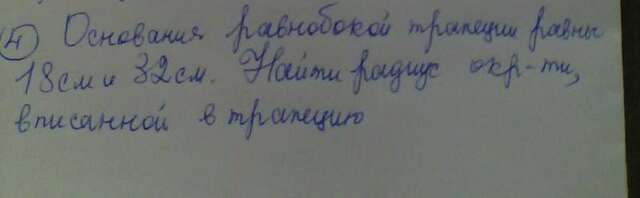 4) Основания равнобокой трапеции равны
18см и 32см. Найти радиус окр-ти,
вписанной в трапецию